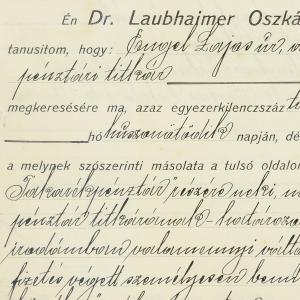 Én Dr. Laubhajmer Oszká
tanusitom, hogy: Engel Lajos úr, a
pénztári titkár
megkeresésére ma, azaz egyezerkilenczszáz t
hó huszonötödik napján, dé
a melynek szószerinti másolata a tulsó oldalo
Takarékpénztár" részére neki, m
pénztár titkárának - határoza
irodámban valamennyi váltó
fizetés végett személyesen bemu